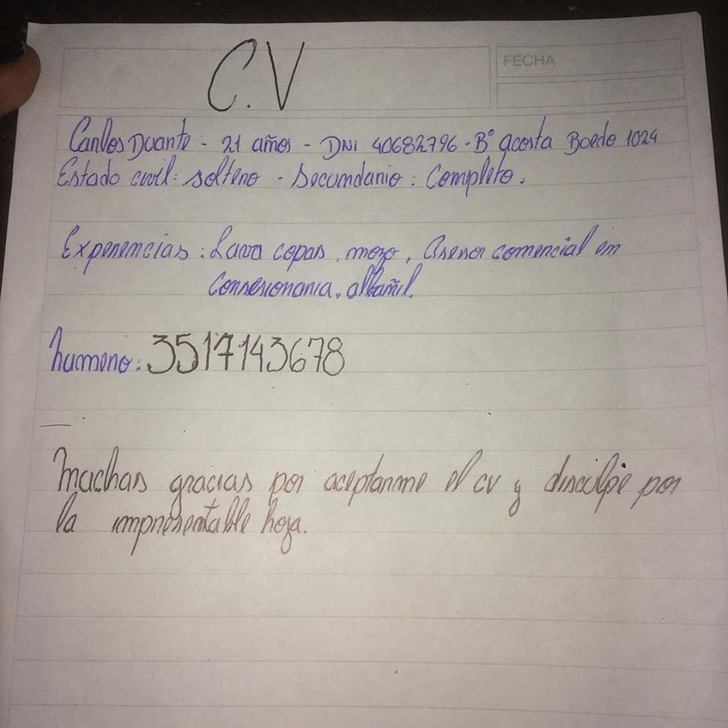 C.V
FECHA
Carlos Duarte - 21 años - DNI 40682796 - B° acosta Boedo 1024
Estado civil: soltero - Secundario: Completo.
Experiencias: Lava copas, mozo, Asesor comercial en
Consesionaria, albañil.
numero: 3517143678
Muchas gracias por aceptarme el cv y disculpe por
la impresentable hoja.